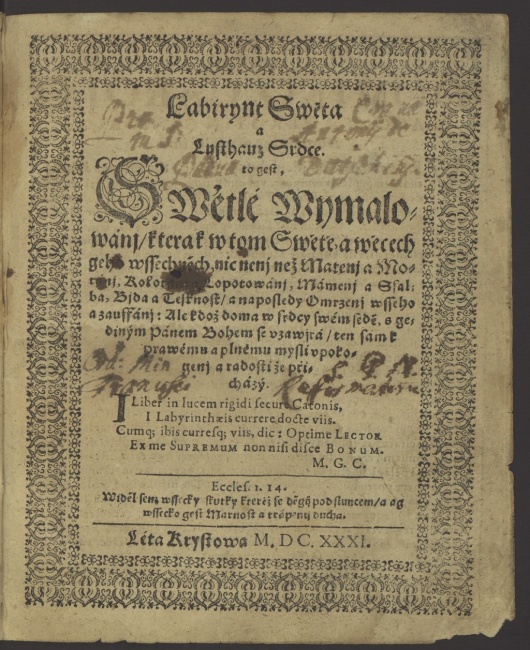 Labirynt Swěta
a
Lusthauz Srdce.
to gest,
SWětlé Wymalo-
wánj / kterak w tom Swětě, a wěcech
geho wssechněch, nic nenj než Matenj a Mo-
Lopotowánj, Mámenj a Ssal-
ba, Bjda a Tesknost / a naposledy Omrzenj wsseho
a zauffánj: Ale kdož doma w srdcy swém sedě, s ge-
diným Pánem Bohem se vzawjrá / ten sám k
prawému a plnému mysli vpoko-
genj a radosti že při-
cházý.
I Liber in lucem rigidi secure Catonis,
I Labyrinthæis currere docte viis.
Cumq; ibis curresq; viis, dic: Optime LECTOR
Ex me SUPREMUM non nisi disce BONUM.
M. G. C.
Eccles. 1. 14.
Widěl sem wssecky skutky kteréž se děgj pod sluncem / a ag
wssecko gest Marnost a trápenj ducha.
Léta Krystowa M. DC. XXXI.